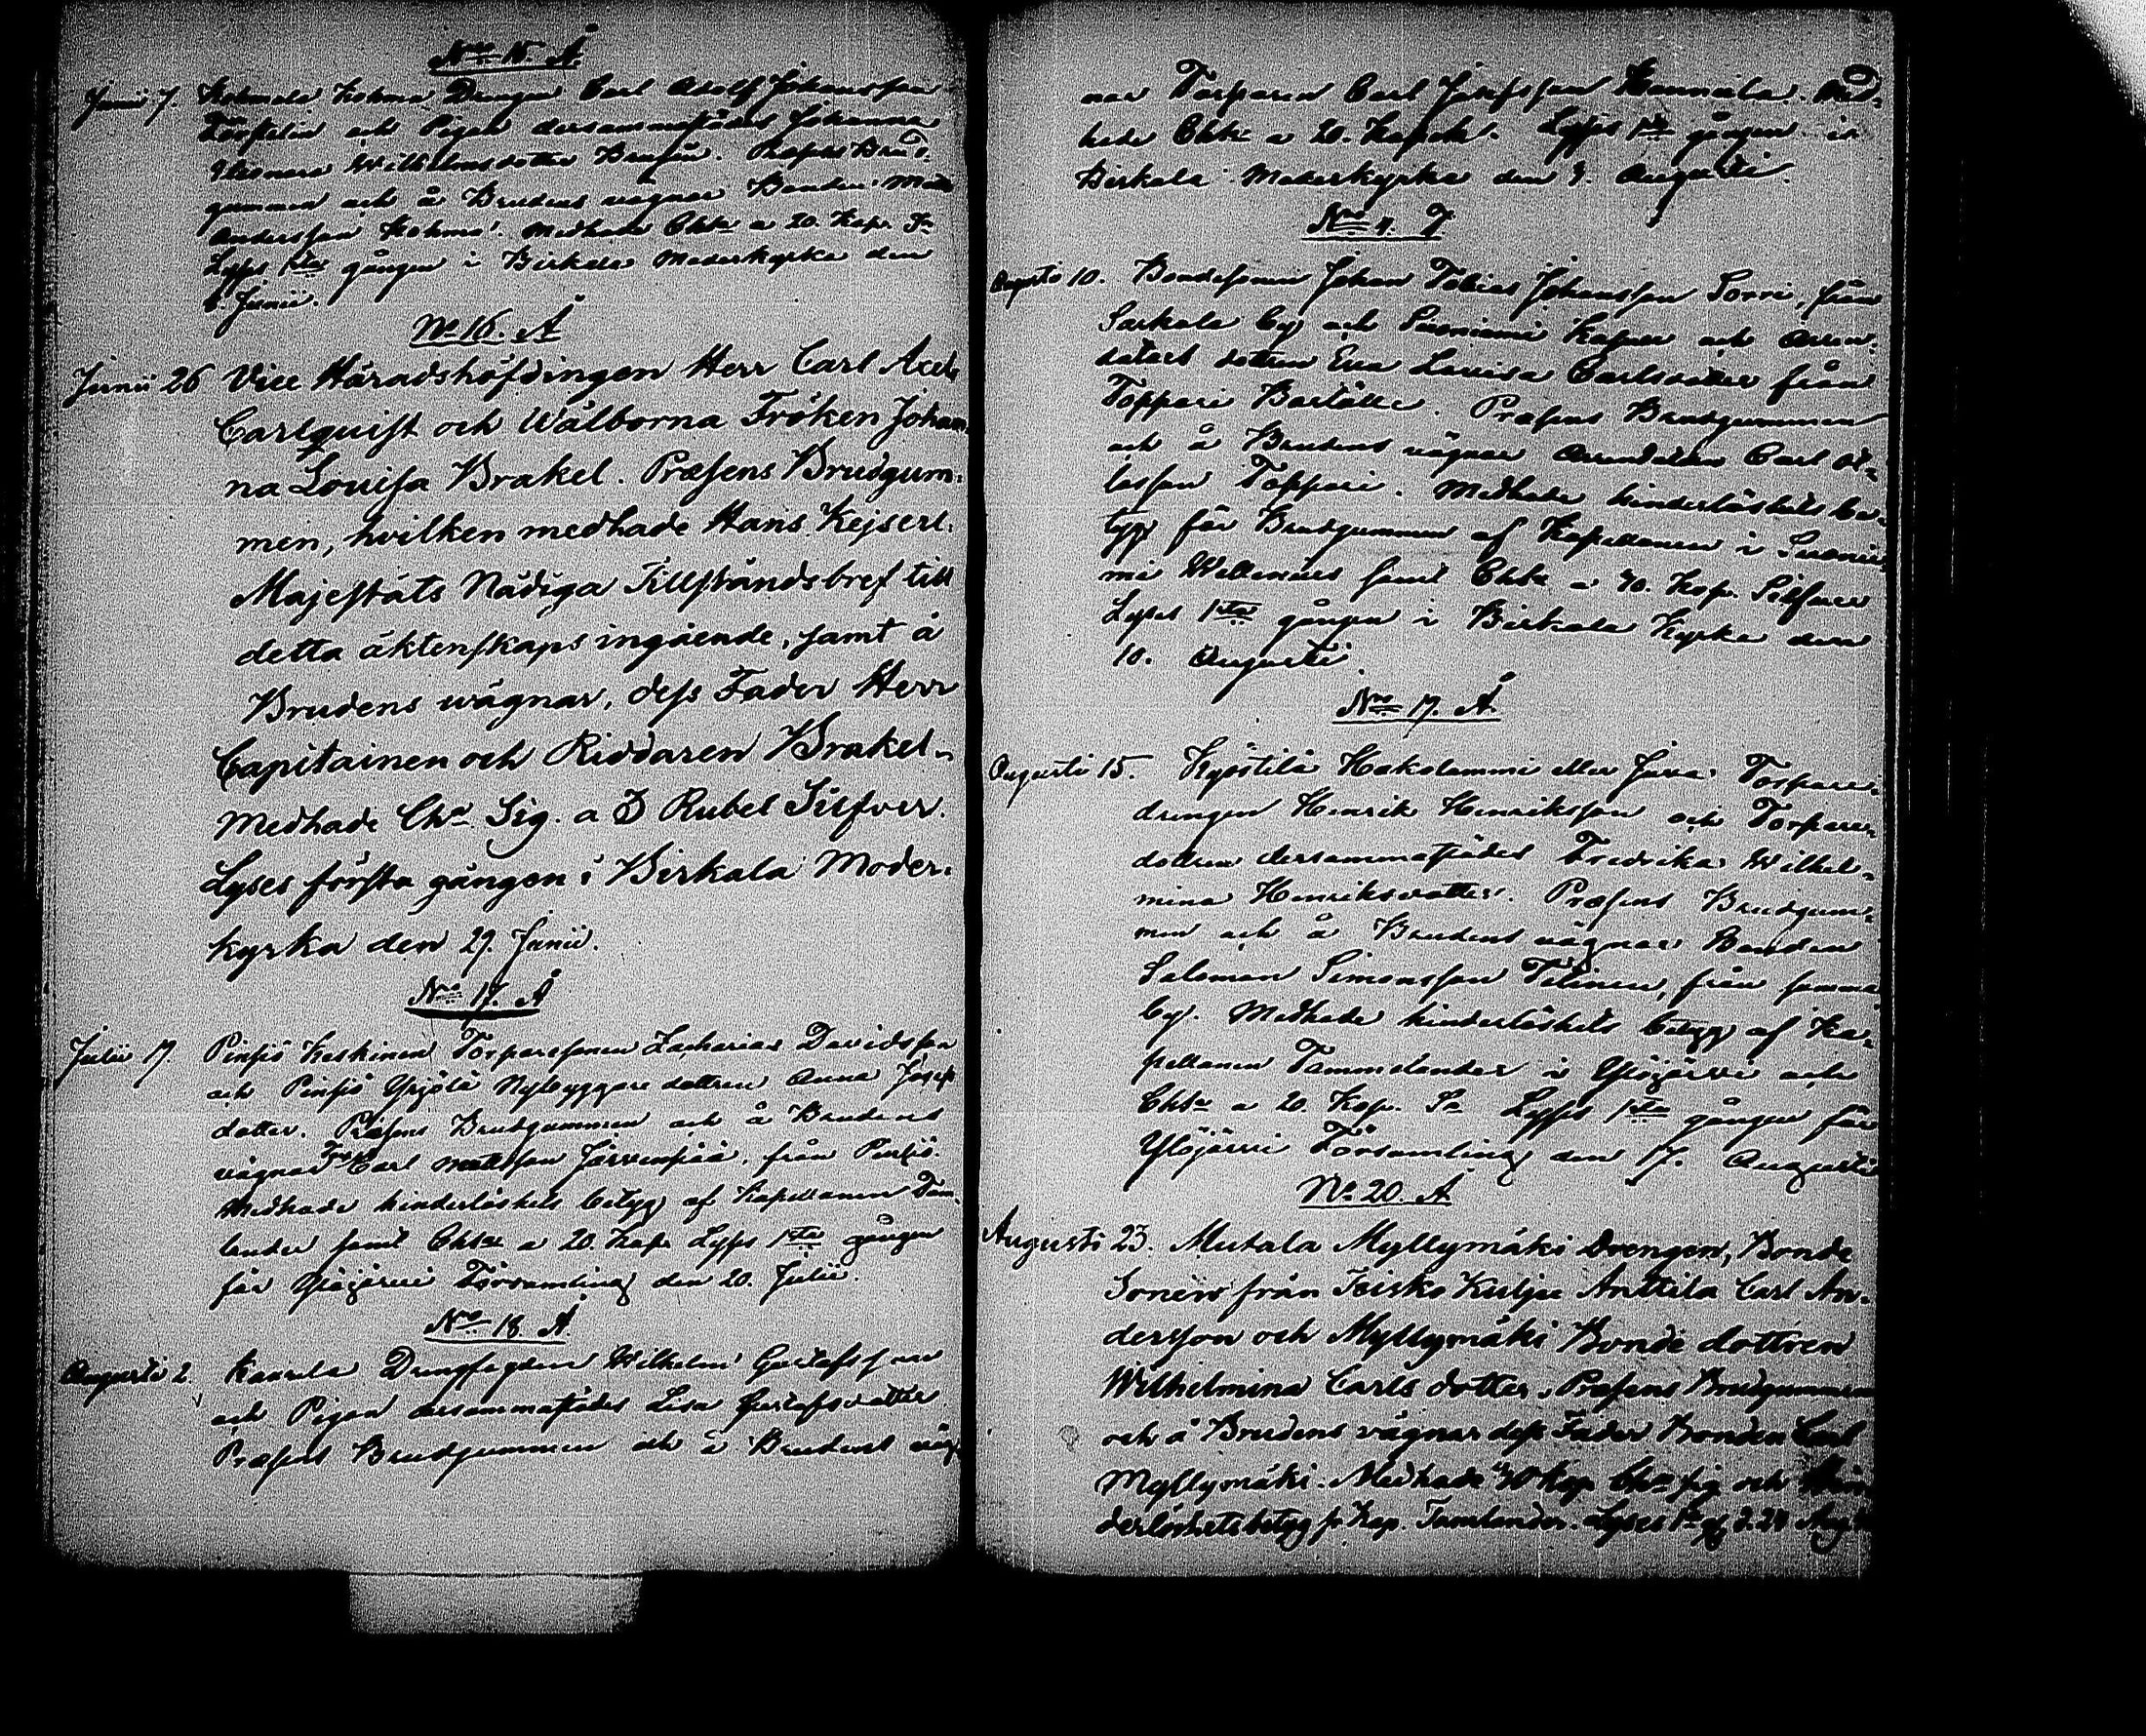 No 15. Å
Junii 7. Kohmala Kohma Drengen Carl Adolf Johansson
och Pigan dersammastädes Johanna
Eleonora Wilhelmsdotter. Præsens Brud-
gummen och å Brudens vägnar Bonden
Andersson Kohma. Medhade Chte a 20. Kop. Sr
Lyses 1sta gången i Birkala Moderkyrka den
8. Junii.
No 16. Å
Junii 26 Vice Häradshöfdingen Herr Carl Axel
Carlquist och Wälborna Fröken Johan-
na Louisa Brakel. Præsens Brudgum-
men, hvilken medhade Hans Kejserl.
Majestäts Nådiga Tillståndsbref till
detta äktenskaps ingående, samt å
Brudens wägnar, dess Fader Herr
Capitainen och Riddaren Brakel.
Medhade Cha. Sig. a 3 Rubel Silfver.
Lyses första gången i Birkala Moder-
kyrka den 29. Junii.
No 17. Å
Julii 17. Pinsiö Keskinen Torparesonen Zacharias Davidsson
och Pinsiö Yrjölä Nybyggare dottren Anna Josefs
dotter. Præsens Brudgummen och å Brudens
vägnar Carl Mattsson Järvenpää, från Pinsiö.
Medhade hinderlöshets betyg af Kapellanen Tam-
lander samt Chta a 20. Kop. Lyses 1sta gången
för Ylöjärvi Församling den 20. Julii.
No 18. Å
Augusti 2. Kaurila Drengen Wilhelm Gustafsson
och Pigan dersammastädes Lisa Gustafsdotter
Præsens Brudgummen och å Brudens väg-
nar Torparen Carl Josefsson Hannula. Med-
hade Chta a 20. Kopek. Lyses 1sta gången i
Birkala Moderkyrka den 3. Augusti.
No 4. T
Augusti 10. Bondesonen Johan Tobias Johansson Sorri, från
Sarkola by och Suoniemi Kapell och Arren-
dators dottren Eva Lovisa Carlsdotter från
Toppari. Præsens Brudgummen
och å Brudens vägnar Arrendatorn Carl
Toppari. Medhade hinderlöshets be-
tyg för Brudgummen af Kapellanen i Suonie-
mi Wellenius samt Chta a 40. Kop. Silfver
Lyses 1sta gången i Birkala Kyrka den
10. Augusti
No 19. Å
Augusti 15. Kyöstilä Hakolammi eller Torpare-
drengen Henrik Henriksson och Torpare-
dottren dersammastädes Fredrika Wilhel-
mina Henriksdotter. Præsens Brudgum-
men och å Brudens vägnar Bonden
Salomon Simonsson Tilinen, från samma
by. Medhade hinderlöshets betyg af Ka-
pellanen Tammelander i Ylöjärvi och
Chta a 20. Kop. Sr Lyses 1sta gången för
Ylöjärvi Församling den 17. Augusti
No 20. Å
Augusti 23. Mutala Myllymäki Drengen, Bonde
Sonen från Teisko Kulju Anttila Carl An-
dersson och Myllymäki Bonde dottren
Wilhelmina Carls dotter, Præsens Brudgummen
och å Brudens vägnar dess Fader Bonden Carl
Myllymäki. Medhade 40 Kop. Cha sig och hin-
derlöshetsbetyg fr Kap. Tamelander. Lyses 1sta g. d. 24 Aug.